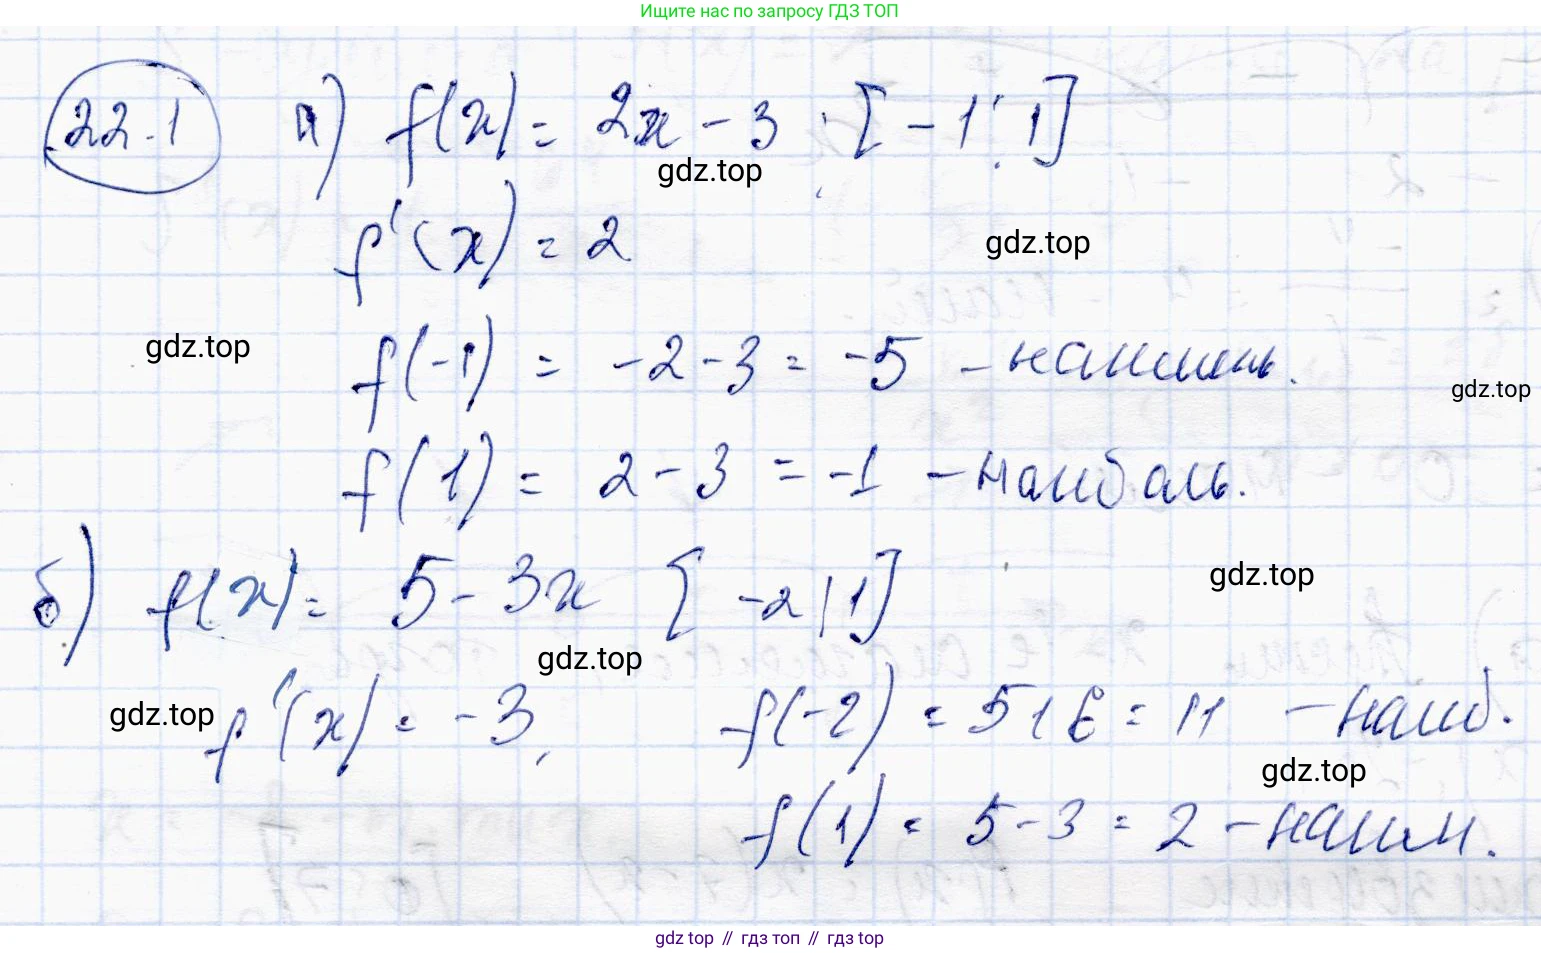 Ищите нас по запросу ГДЗ ТОП
22.1 а) f(x) = 2x - 3 ; [-1; 1]
gdz.top
f'(x) = 2
gdz.top
gdz.top
f(-1) = -2 - 3 = -5 - наимень.
gdz.top
f(1) = 2 - 3 = -1 - наиболь.
б) f(x) = 5 - 3x [-2; 1]
gdz.top
gdz.top
gdz.top
f'(x) = -3, f(-2) = 5 + 6 = 11 - наиб.
gdz.top
f(1) = 5 - 3 = 2 - наим.
gdz top // гдз топ // гдз.top